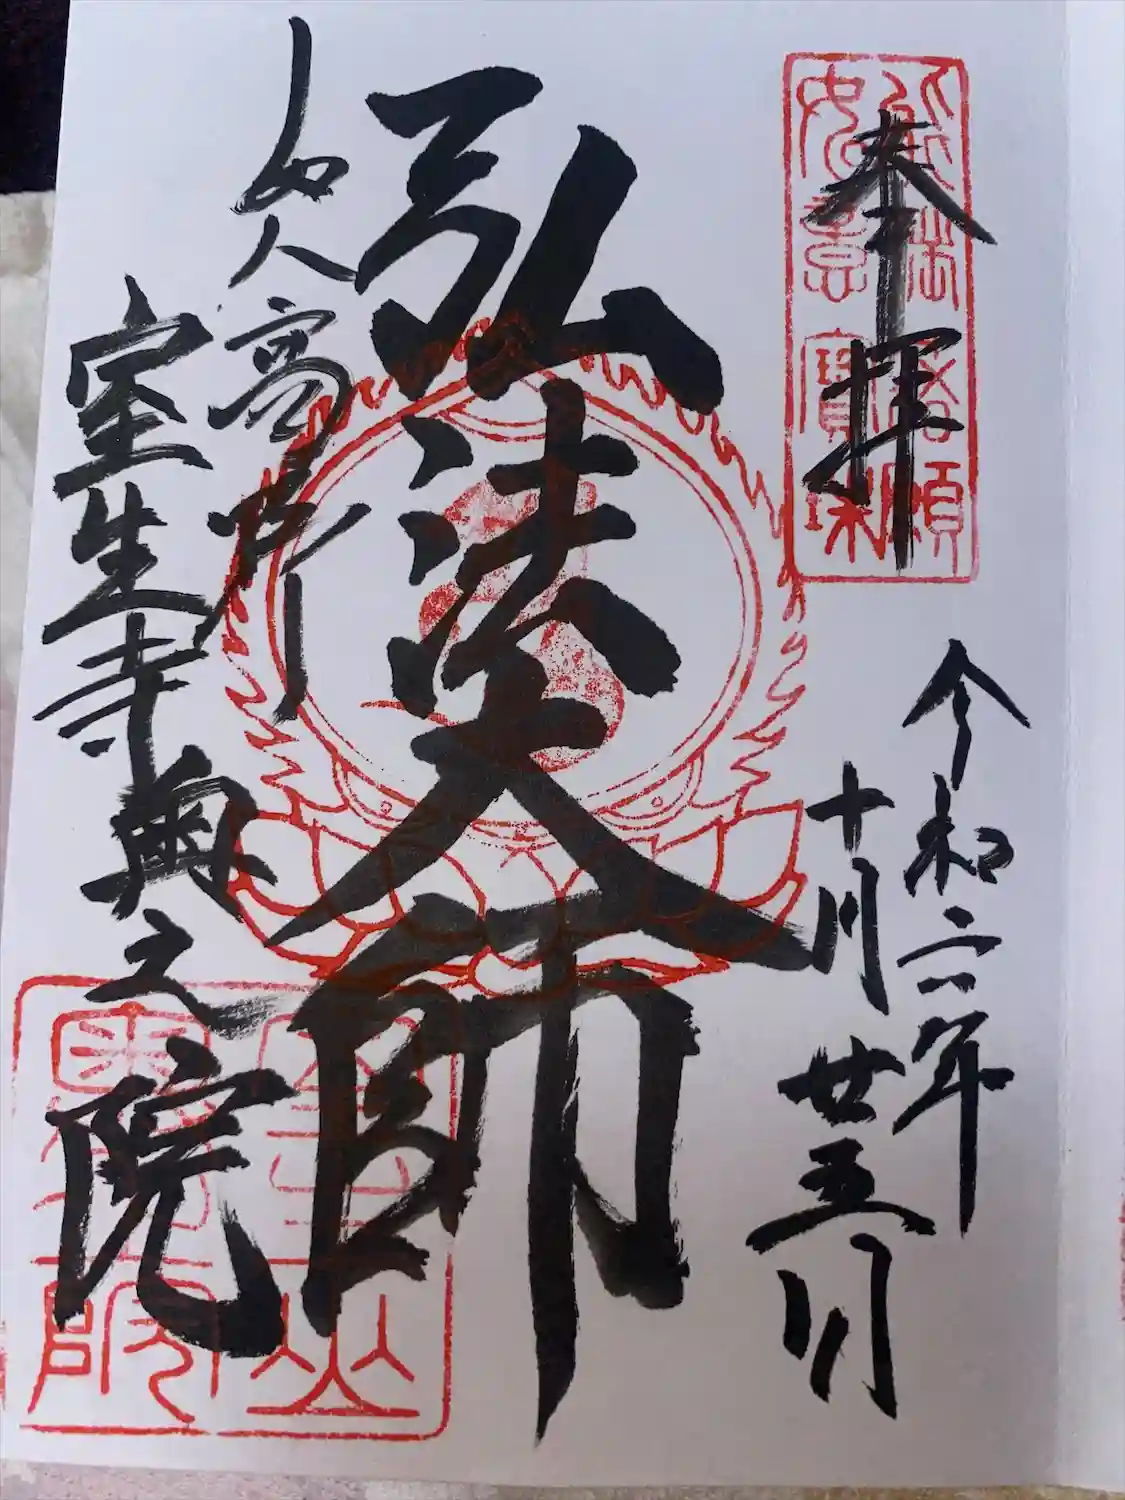 奉拝
令和二年
十月廿五日
弘法大師
女人高野
室生寺奥之院